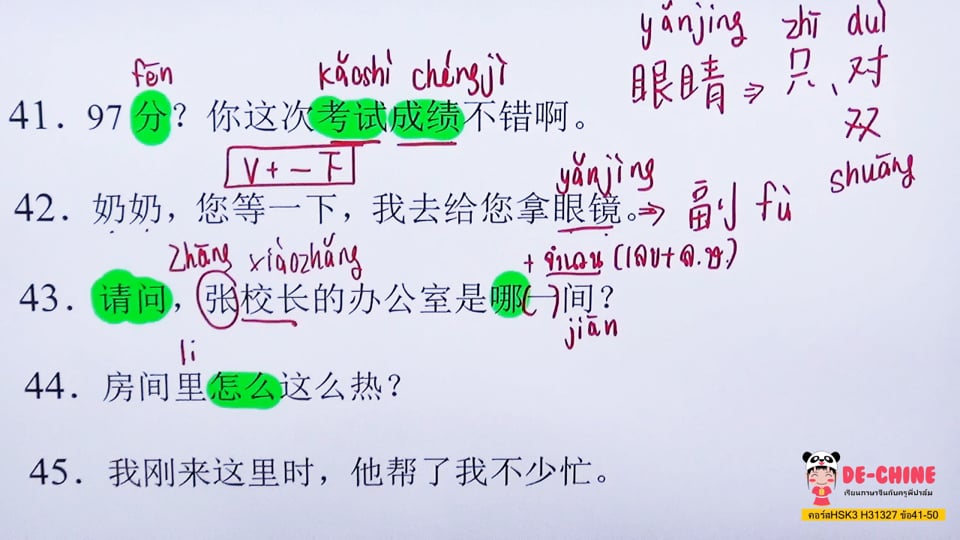 yǎnjing zhī duì
眼睛 ⇒ 只、对
双
shuāng
fēn kǎoshì chéngjì
41. 97 分？你这次考试成绩不错啊。
V + 一下
yǎnjìng
42. 奶奶，您等一下，我去给您拿眼镜。⇒ 副 fù
zhāng xiàozhǎng
+ จำนวน (เลข+ล.ษ.)
43. 请问，张校长的办公室是哪(一)间？
jiān
li
44. 房间里怎么这么热？
45. 我刚来这里时，他帮了我不少忙。
DE-CHINE
เรียนภาษาจีนกับครูพี่ปาล์ม
คอร์สHSK3 H31327 ข้อ41-50